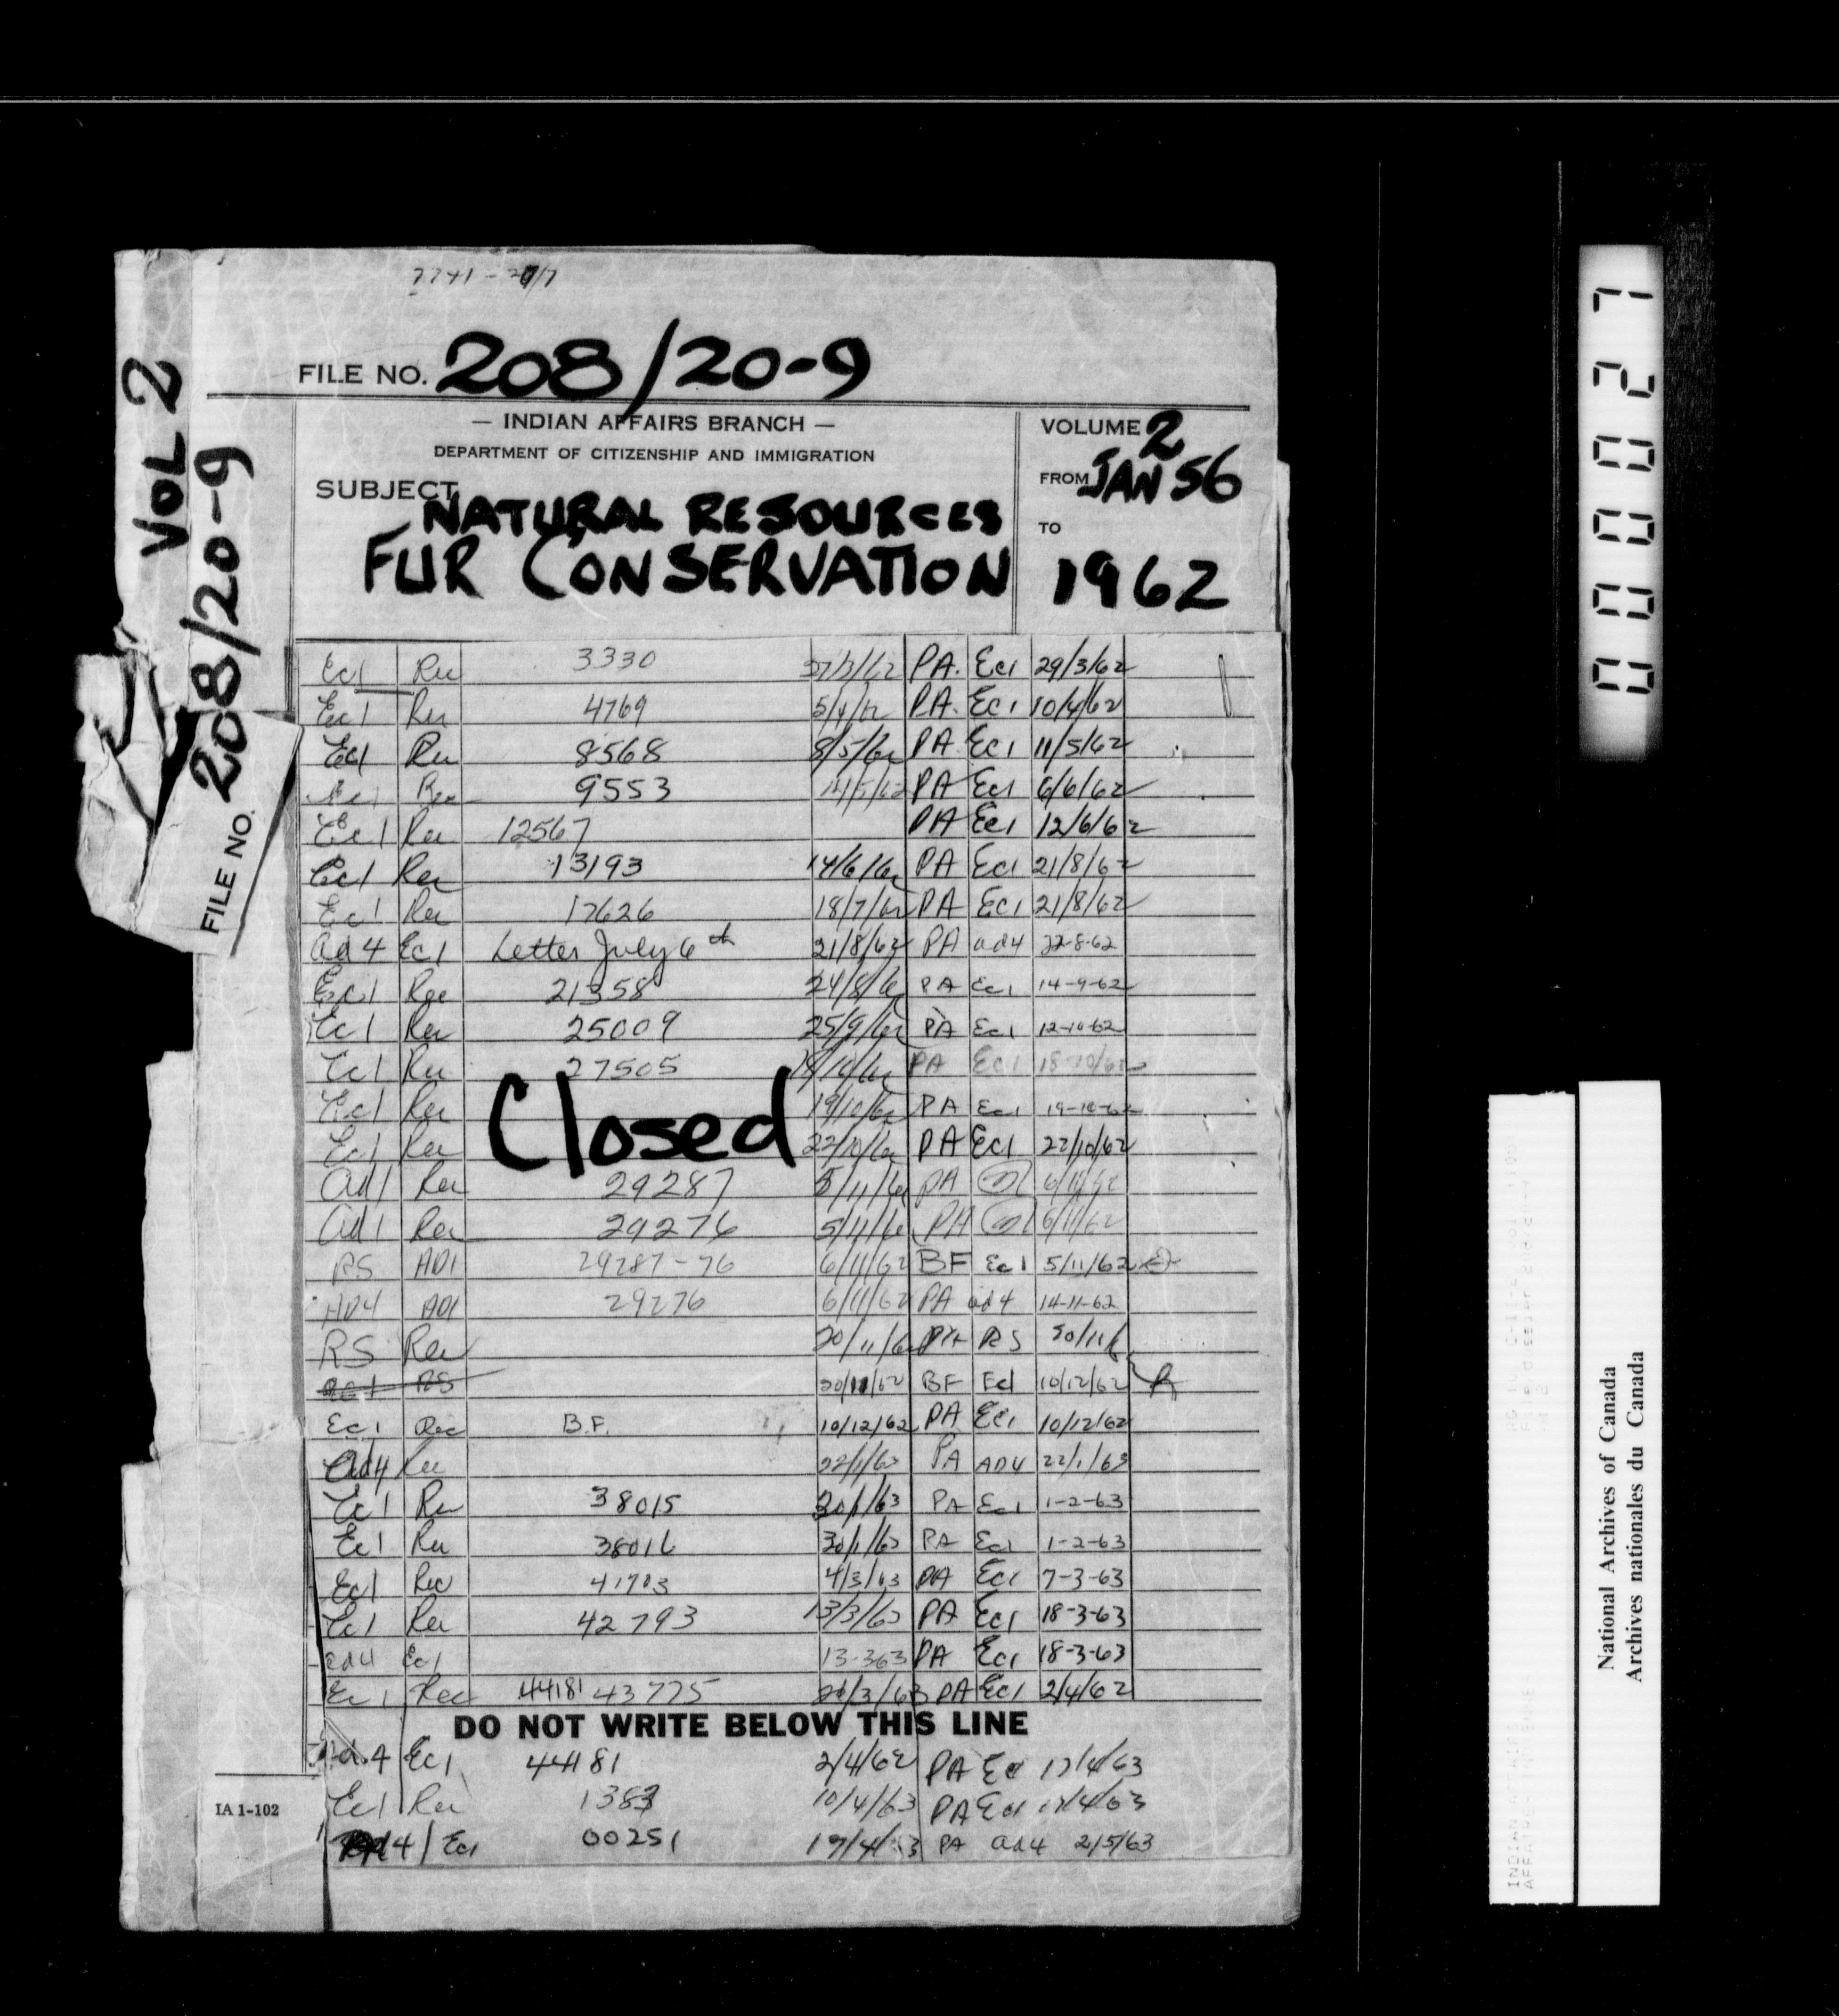 7741-
FILE NO. 208/20-9
— INDIAN AFFAIRS BRANCH —
DEPARTMENT OF CITIZENSHIP AND IMMIGRATION
SUBJECT NATURAL RESOURCES
FUR CONSERVATION
VOLUME 2
FROM JAN 56
TO
1962
VOL 2
208/20-9
FILE NO. 208/20-9
Ec1 Rec 3330 27/3/62 PA. Ec1 29/3/62
Ec1 Rec 4769 5/4/62 PA. Ec1 10/4/62
Ec1 Rec 8568 8/5/62 PA Ec1 11/5/62
Ec1 Rec 9553 PA Ec1 6/6/62
Ec1 Rec 12567 PA Ec1 12/6/62
Ec1 Rec 13193 14/6/62 PA Ec1 21/8/62
Ec1 Rec 17626 18/7/62 PA Ec1 21/8/62
ad4 Ec1 Letter July 6th 21/8/62 PA ad4 22-8-62
Ec1 Rec 21358 24/8/62 PA Ec1 14-9-62
Ec1 Rec 25009 25/9/62 PA Ec1 12-10-62
Ec1 Rec 27505 PA Ec1 18-10/62
Ec1 Rec 19/10/62 PA Ec1 19-10-62
Closed
Ec1 Rec 22/10/62 PA Ec1 22/10/62
Ad1 Rec 29287 5/11/62 PA 6/11/62
Ad1 Rec 29276 5/11/62 PA 6/11/62
RS AD1 29287-76 6/11/62 BF Ec1 5/11/62
AD4 AD1 29276 6/11/62 PA ad4 14-11-62
RS Rec 20/11/62 PA RS 30/11/6
RS 20/11/62 BF Ec1 10/12/62
Ec1 Rec B.F. 10/12/62 PA Ec1 10/12/62
Ad4 Rec 22/1/63 PA AD4 22/1/63
Ec1 Rec 38015 30/1/63 PA Ec1 1-2-63
Ec1 Rec 38016 30/1/63 PA Ec1 1-2-63
Ec1 Rec 41703 4/3/63 PA Ec1 7-3-63
Ec1 Rec 42793 13/3/63 PA Ec1 18-3-63
ad4 Ec1 13-363 PA Ec1 18-3-63
Ec1 Rec 44181 43775 21/3/63 PA Ec1 2/4/62
DO NOT WRITE BELOW THIS LINE
Ad.4 Ec1 44181 2/4/62 PA Ec1 17/4/63
Ec1 Rec 1383 10/4/63 PA Ec1 17/4/63
Ad4 / Ec1 00251 17/4/63 PA ad4 2/5/63
IA 1-102
000027
National Archives of Canada
Archives nationales du Canada
INDIAN AFFAIRS